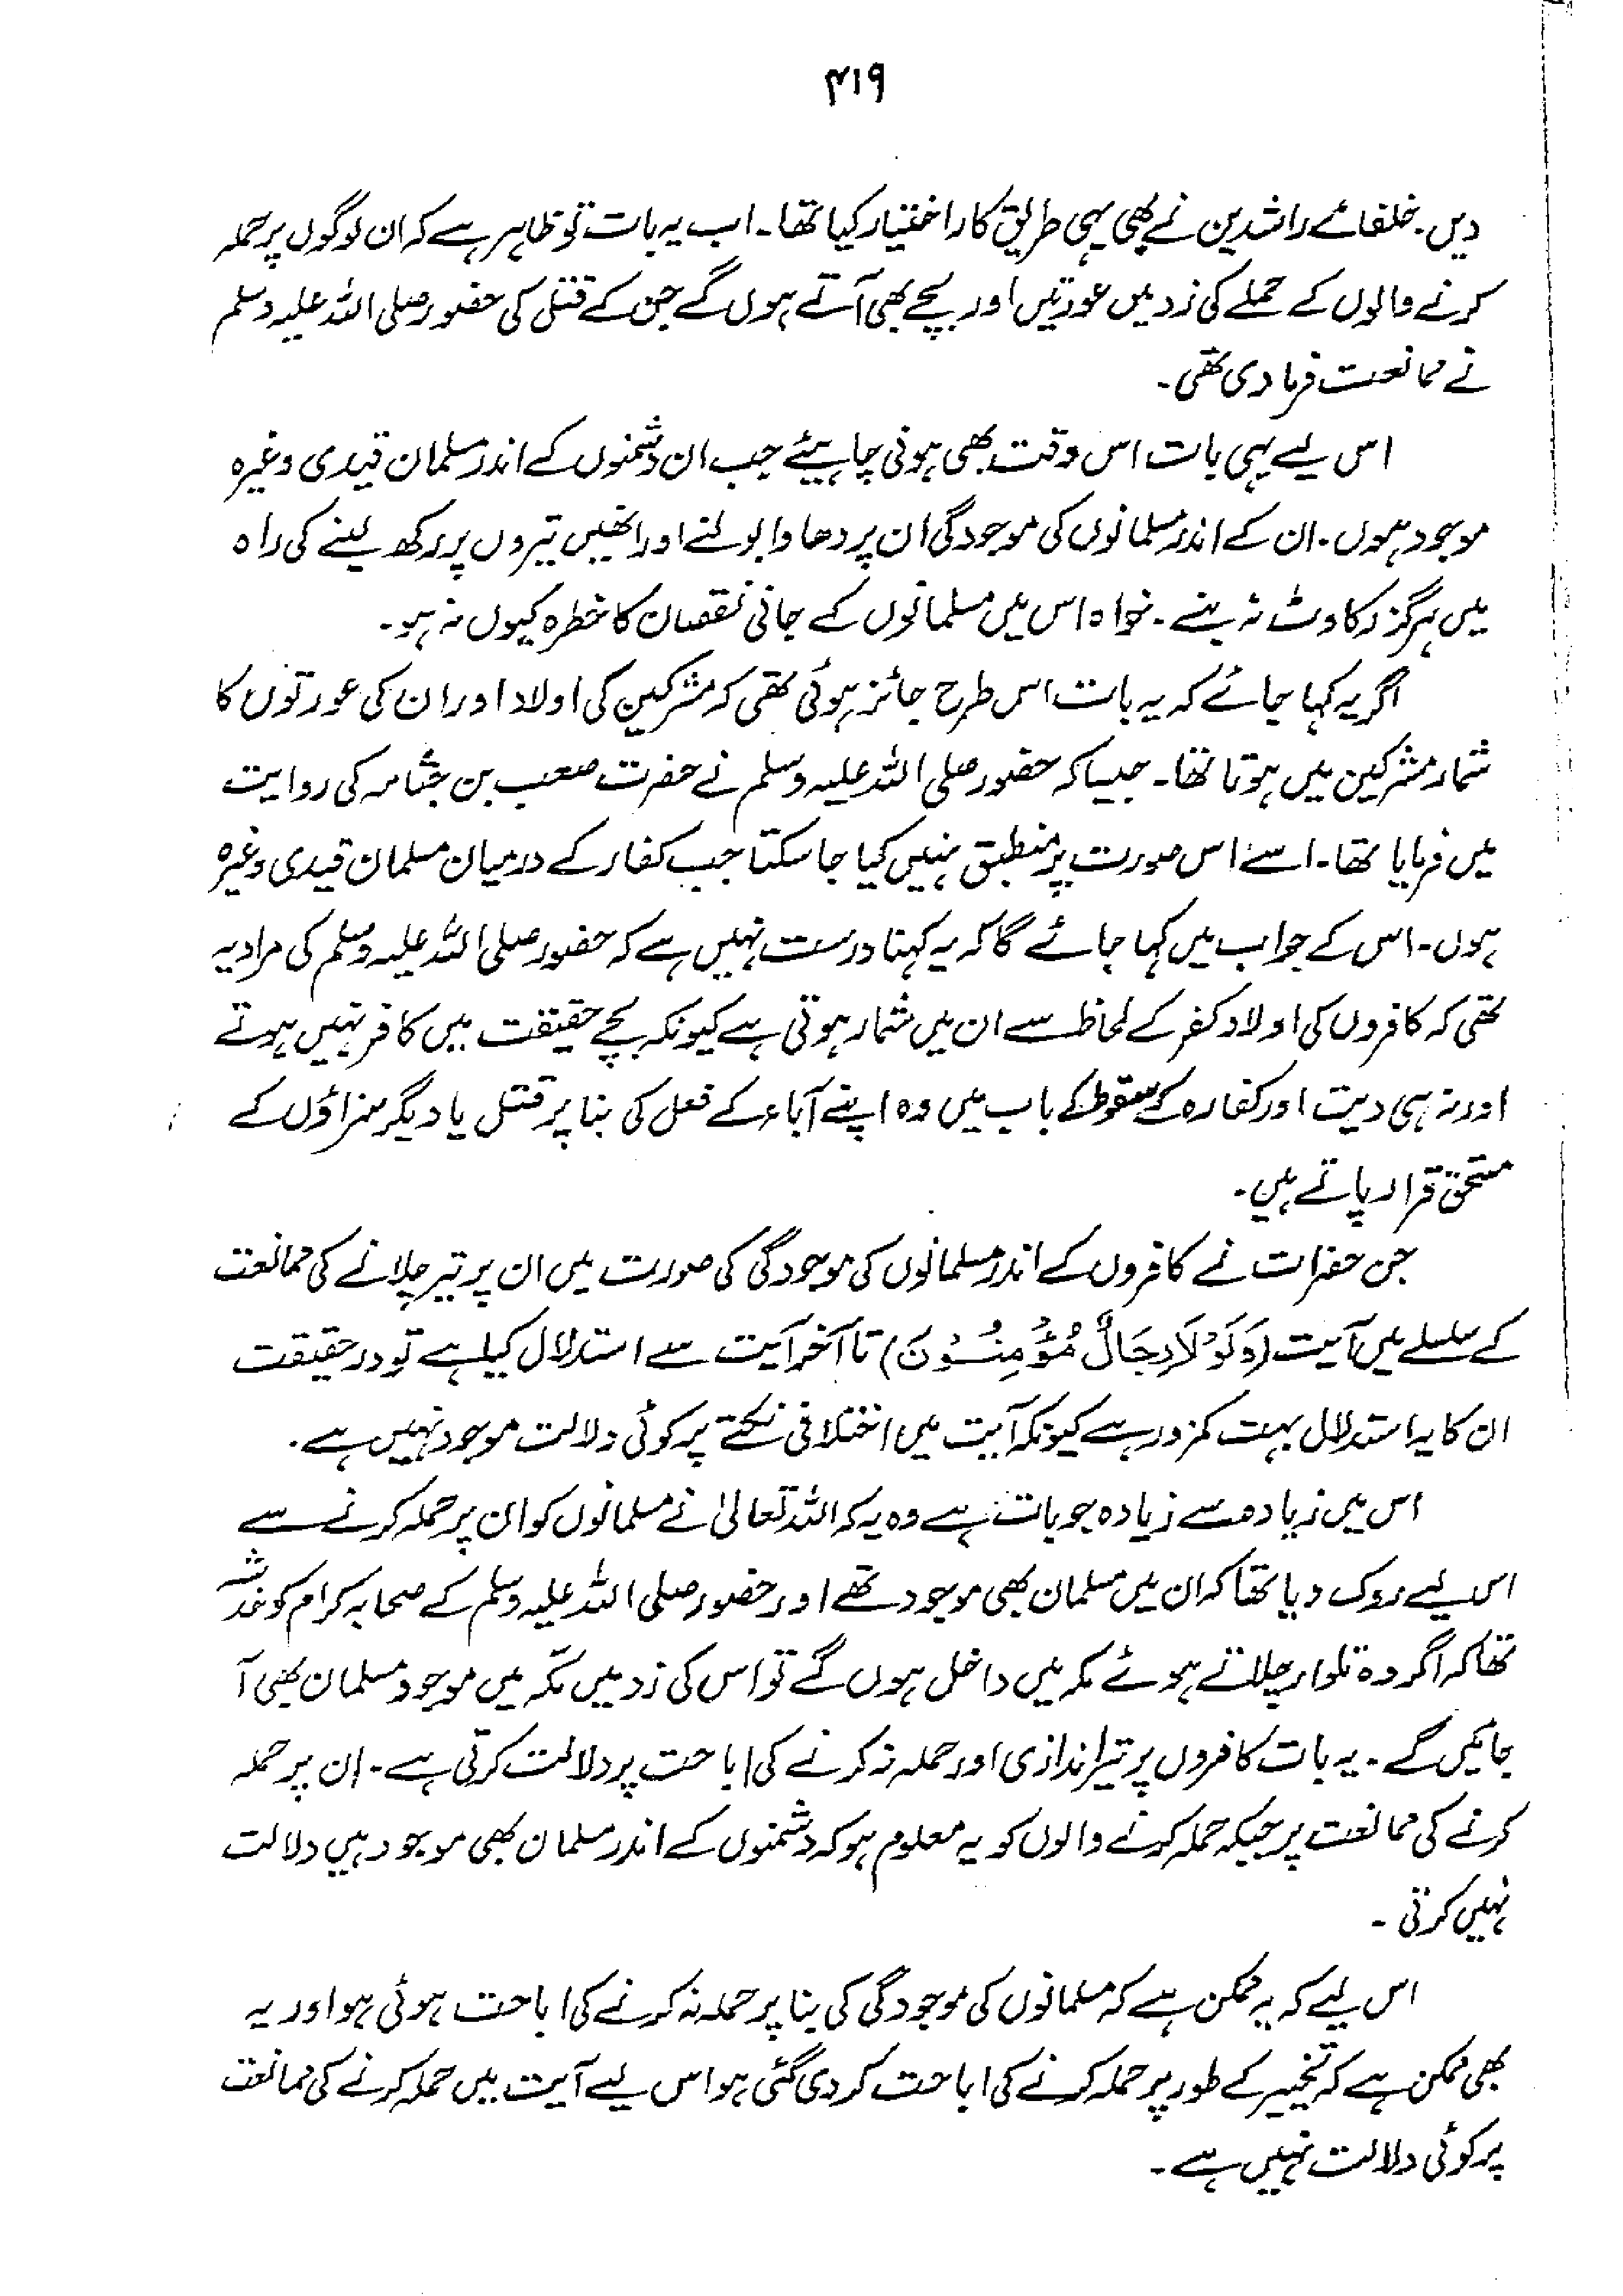 ۴۱۹
دیں۔ خلفائے راشدین نے بھی یہی طریق کار اختیار کیا تھا۔ اب یہ بات تو ظاہر ہے کہ ان لوگوں پر حملہ
کرنے والوں کے حملے کی زد میں عورتیں اور بچے بھی آتے ہوں گے جن کے قتل کی حضور صلی اللہ علیہ وسلم
نے ممانعت فرما دی تھی۔
اس لیے یہی بات اس وقت بھی ہونی چاہیئے جب ان دشمنوں کے اندر مسلمان قیدی وغیرہ
موجود ہوں۔ ان کے اندر مسلمانوں کی موجودگی ان پر دھاوا بولنے اور انھیں تیروں پر رکھ لینے کی راہ
میں ہرگز رکاوٹ نہ بنے۔ خواہ اس میں مسلمانوں کے جانی نقصان کا خطرہ کیوں نہ ہو۔
اگر یہ کہا جائے کہ یہ بات اس طرح جائز ہوئی تھی کہ مشرکین کی اولاد اور ان کی عورتوں کا
شمار مشرکین میں ہوتا تھا۔ جیسا کہ حضور صلی اللہ علیہ وسلم نے حضرت صعب بن جثامہ کی روایت
میں فرمایا تھا۔ اسے اس صورت پر منطبق نہیں کیا جا سکتا جب کفار کے درمیان مسلمان قیدی وغیرہ
ہوں۔ اس کے جواب میں کہا جائے گا کہ یہ کہنا درست نہیں ہے کہ حضور صلی اللہ علیہ وسلم کی مراد یہ
تھی کہ کافروں کی اولاد کفر کے لحاظ سے ان میں شمار ہوتی ہے کیونکہ بچے حقیقت میں کافر نہیں ہوتے
اور نہ ہی دیت اور کفارہ کے سقوط کے باب میں وہ اپنے آباء کے فعل کی بنا پر قتل یا دیگر سزاؤں کے
مستحق قرار پاتے ہیں۔
جن حضرات نے کافروں کے اندر مسلمانوں کی موجودگی کی صورت میں ان پر تیر چلانے کی ممانعت
کے سلسلے میں آیت (وَلَوْلَا رِجَالٌ مُّؤْمِنُوْنَ) تا آخر آیت سے استدلال کیا ہے تو درحقیقت
ان کا یہ استدلال بہت کمزور ہے کیونکہ آیت میں اختلافی نکتے پر کوئی دلالت موجود نہیں ہے۔
اس میں زیادہ سے زیادہ جو بات ہے وہ یہ کہ اللہ تعالیٰ نے مسلمانوں کو ان پر حملہ کرنے سے
اس لیے روک دیا تھا کہ ان میں مسلمان بھی موجود تھے اور حضور صلی اللہ علیہ وسلم کے صحابہ کرام کو خدشہ
تھا کہ اگر وہ تلوار چلاتے ہوئے مکہ میں داخل ہوں گے تو اس کی زد میں مکہ میں موجود مسلمان بھی آ
جائیں گے۔ یہ بات کافروں پر تیراندازی اور حملہ نہ کرنے کی اباحت پر دلالت کرتی ہے۔ ان پر حملہ
کرنے کی ممانعت پر جبکہ حملہ کرنے والوں کو یہ معلوم ہو کہ دشمنوں کے اندر مسلمان بھی موجود ہیں دلالت
نہیں کرتی۔
اس لیے کہ یہ ممکن ہے کہ مسلمانوں کی موجودگی کی بنا پر حملہ نہ کرنے کی اباحت ہوئی ہو اور یہ
بھی ممکن ہے کہ تخییر کے طور پر حملہ کرنے کی اباحت کر دی گئی ہو اس لیے آیت میں حملہ کرنے کی ممانعت
پر کوئی دلالت نہیں ہے۔